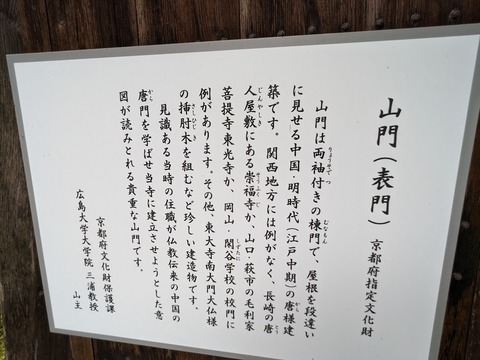 山門（表門） 京都府指定文化財
山門は両袖付きの棟門で、屋根を段違い
に見せる中国・明時代（江戸中期）の唐様建
築です。関西地方には例がなく、長崎の唐
人屋敷にある崇福寺か、山口・萩市の毛利家
菩提寺東光寺か、岡山・閑谷学校の校門に
例があります。その他、東大寺南大門大仏様
の挿肘木を組むなど珍しい建造物です。
見識ある当時の住職が仏教伝来の中国の
唐門を学ばせ当寺に建立させようとした意
図が読みとれる貴重な山門です。
京都府文化財保護課
広島大学大学院 三浦教授
山主